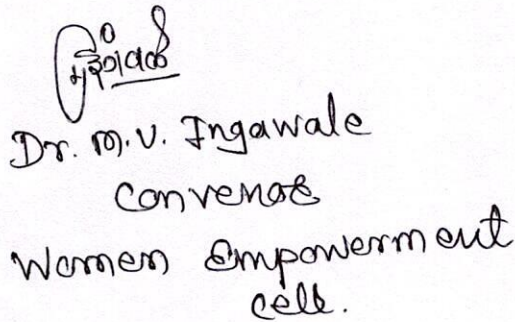 Dr. M.V. Ingawale
Convenor
Women Empowerment
Cell.